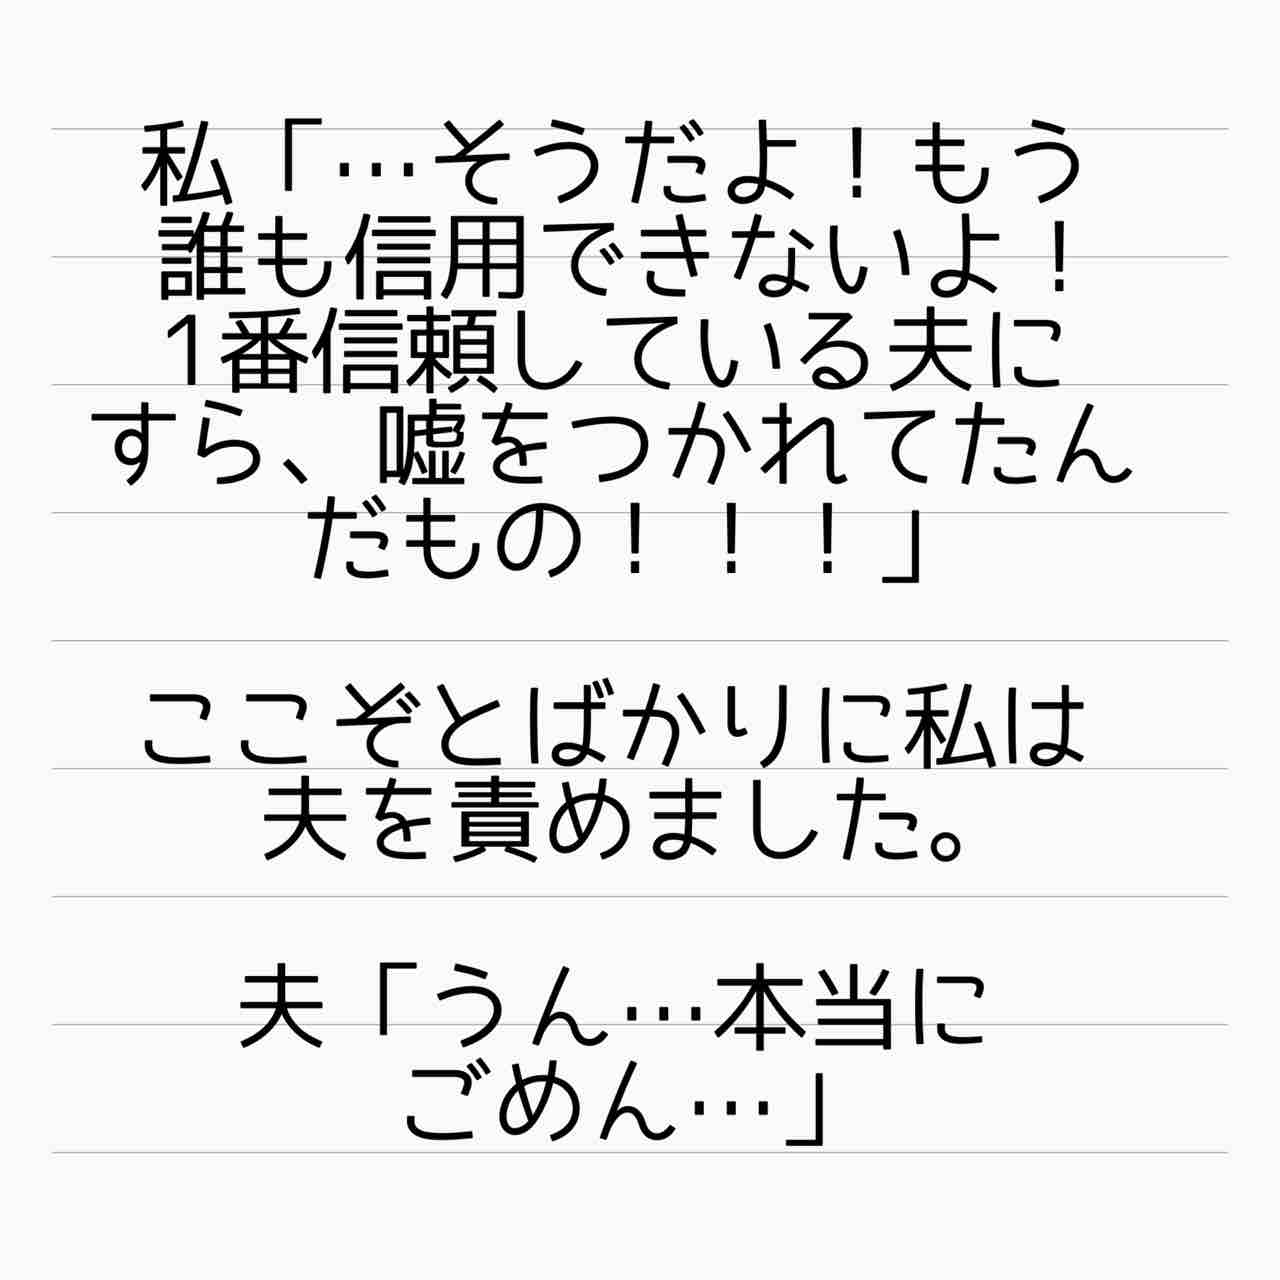 私「…そうだよ！もう
誰も信用できないよ！
1番信頼している夫に
すら、嘘をつかれてたん
だもの！！！」
ここぞとばかりに私は
夫を責めました。
夫「うん…本当に
ごめん…」